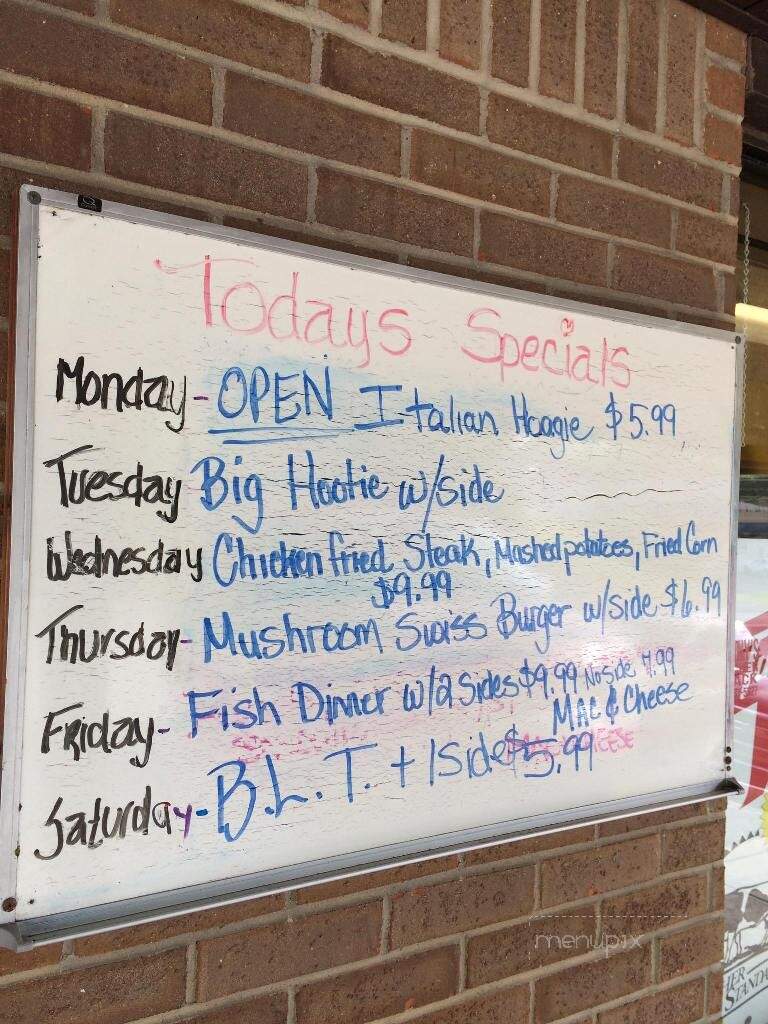 Todays Specials
Monday - OPEN Italian Hoagie $5.99
Tuesday Big Hootie w/side
Wednesday Chicken fried Steak, Mashed potatoes, Fried Corn
$9.99
Thursday - Mushroom Swiss Burger w/side $6.99
Friday - Fish Dinner w/2 Sides $9.99 No side 7.99
MAC & Cheese
Saturday - B.L.T. + 1 Side $5.99
menupix